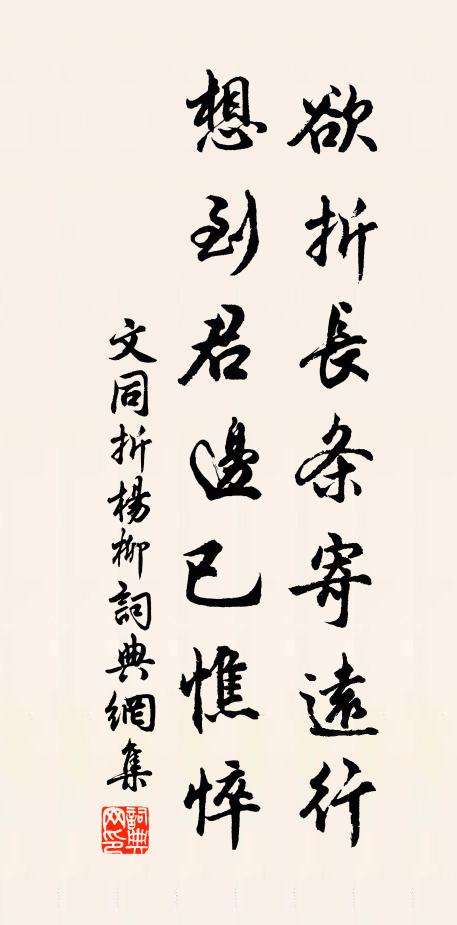 欲折長条寄遠行
想到君邊已憔悴
文同折楊柳詞典網集
詞典網印